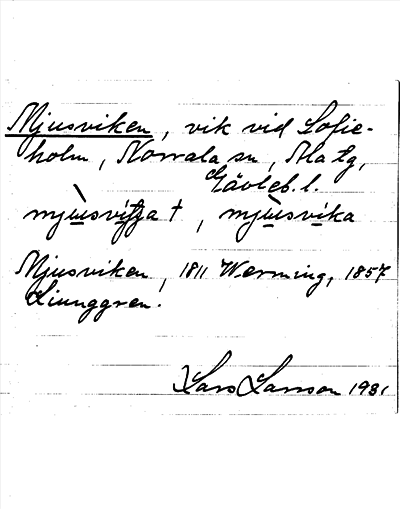 Mjusviken, vik vid Sofie-
holm, Norrala sn, Ala tg,
Gävleb. l.
mjùsvitja †, mjùsvika
Mjusviken, 1811 Werming, 1857
Ljunggren.
Lars Larsson 1931